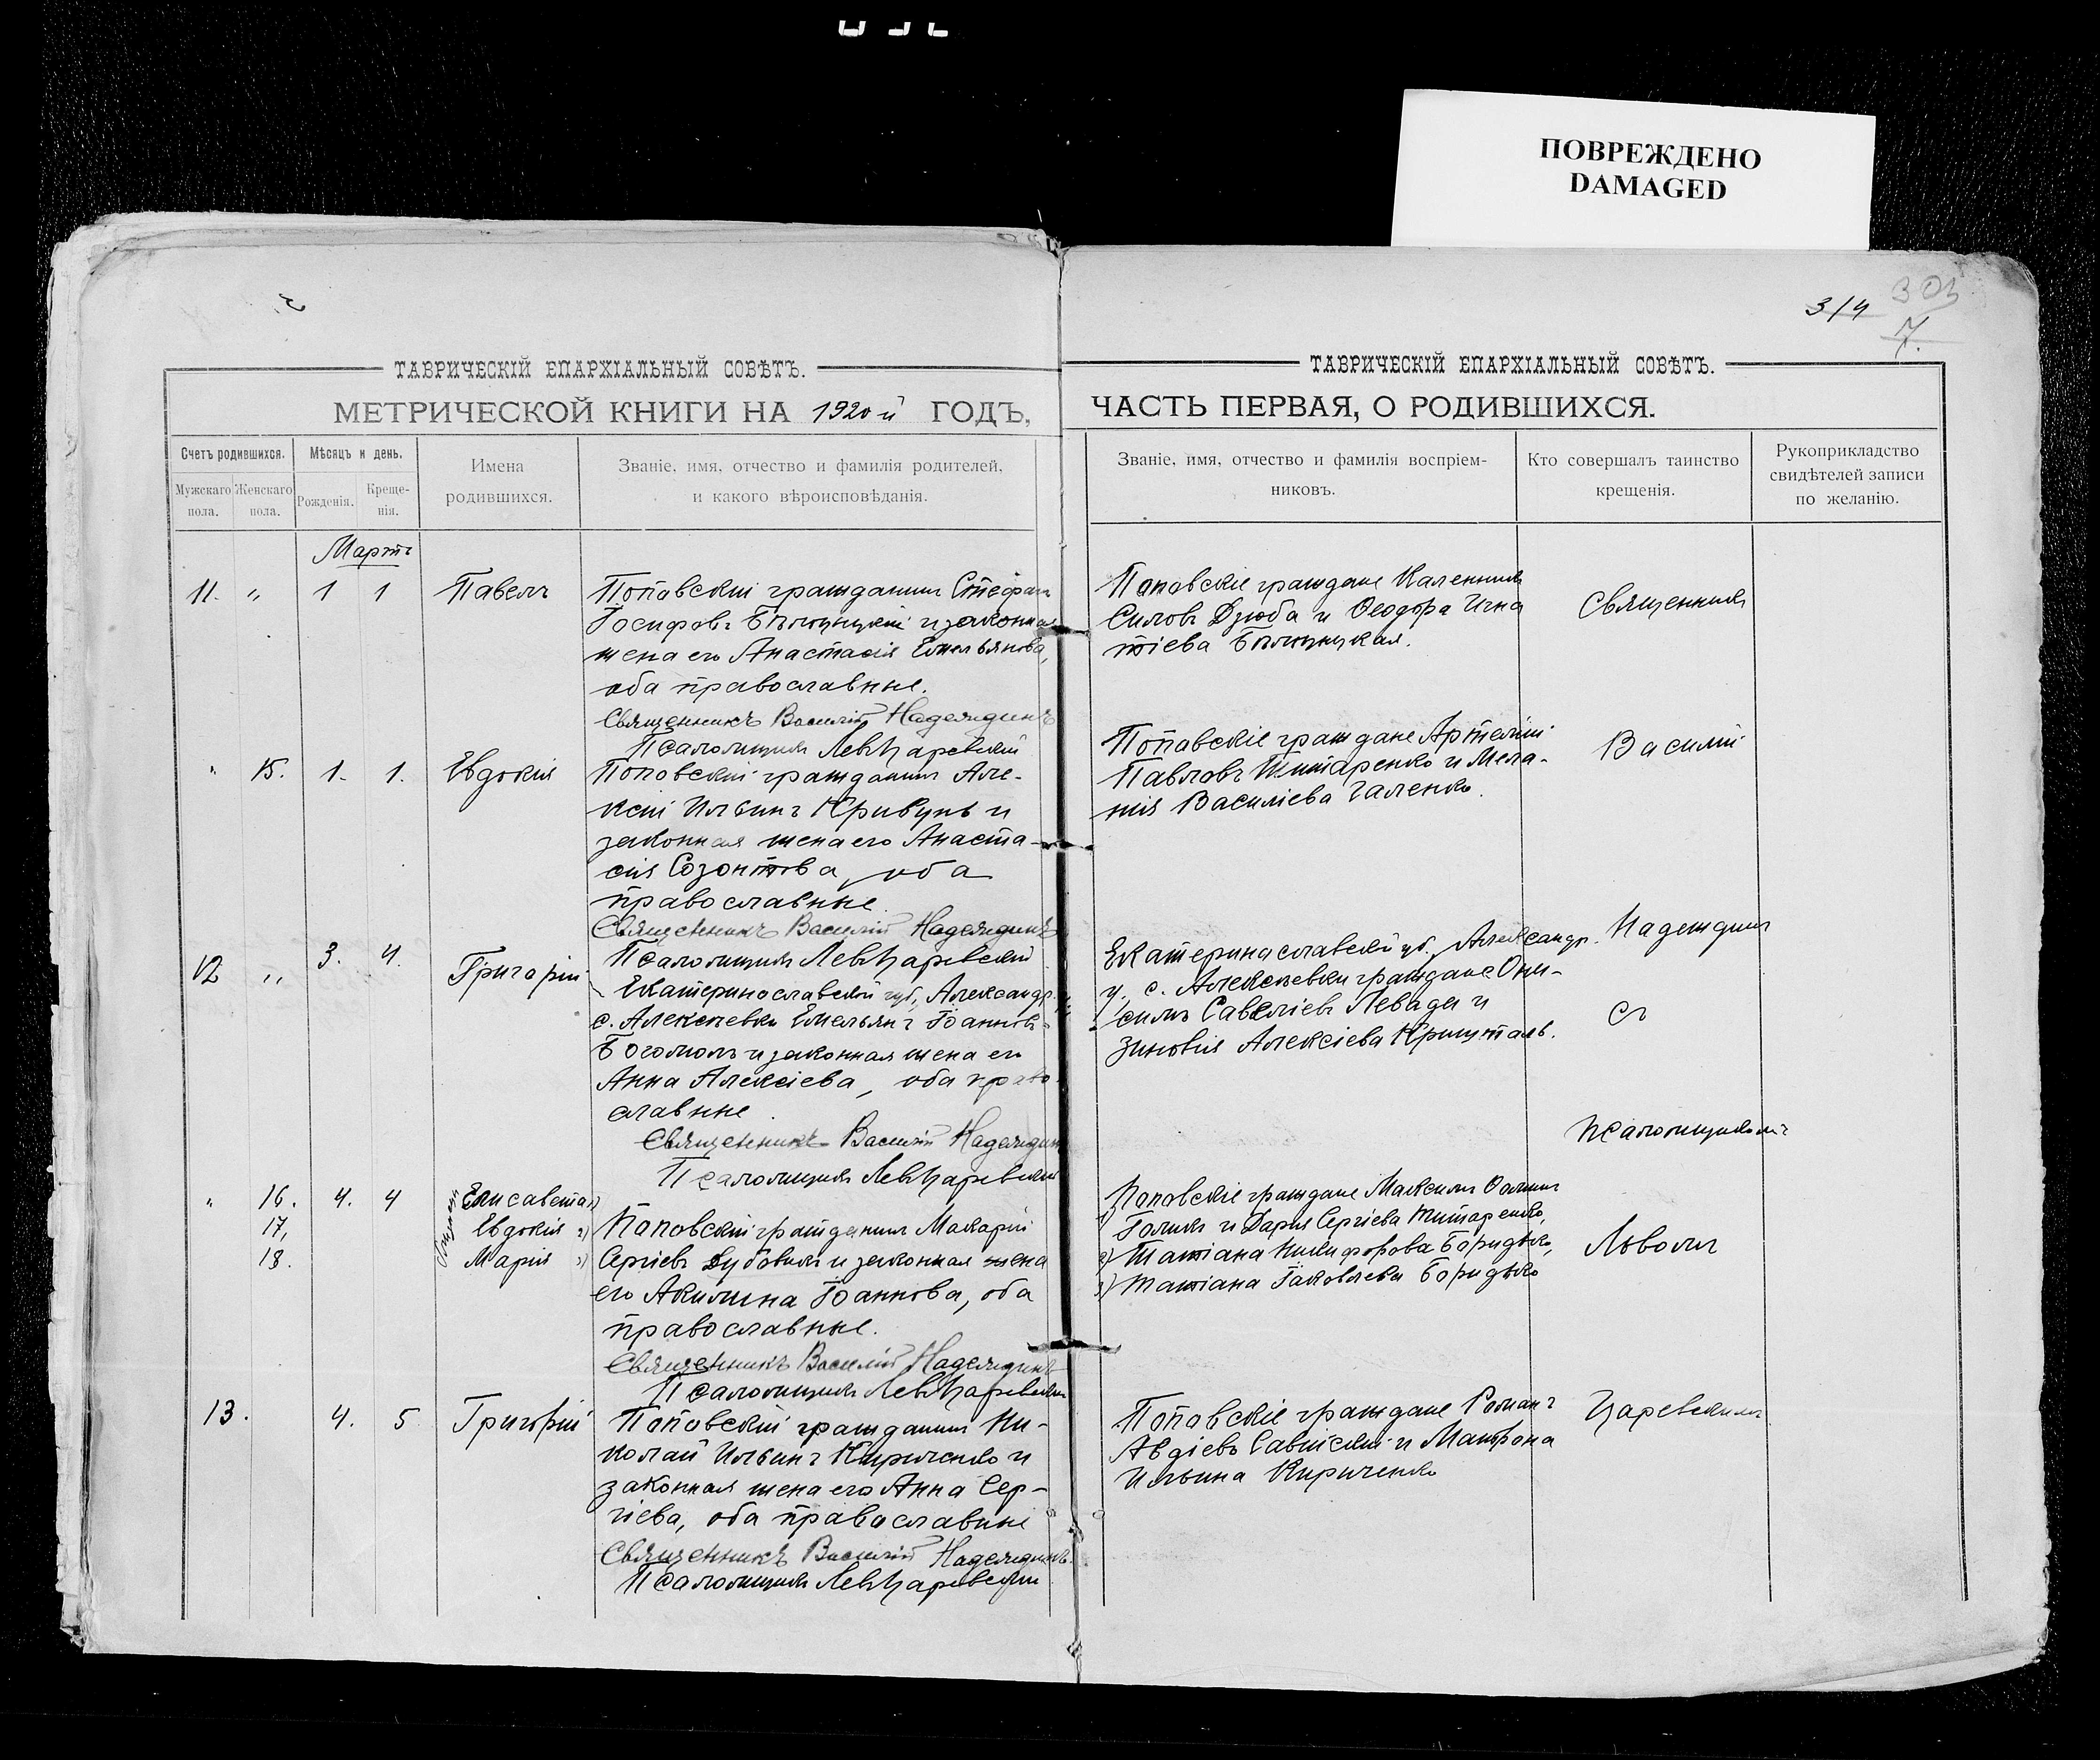 ПОВРЕЖДЕНО
DAMAGED
3/4
7.
ТАВРИЧЕСКІЙ ЕПАРХІАЛЬНЫЙ СОВѢТЪ.
МЕТРИЧЕСКОЙ КНИГИ НА 1920й ГОДЪ,
Счетъ родившихся.
Мужскаго пола.
Женскаго пола.
Мѣсяцъ и день.
Рожденія.
Креще-
нія.
Имена
родившихся.
Званіе, имя, отчество и фамилія родителей,
и какого вѣроисповѣданія.
Мартъ
11. " 1 1 Павелъ
Поповскій гражданинъ Стефанъ
Іосифовъ и законная
жена его Анастасія Емельянова,
оба православные.
Священникъ Василій Надеждинъ
Псаломщикъ Левъ Царевскій
" 15. 1. 1. Евдокія
Поповскій гражданинъ Але-
ксій Ильинъ Кривунъ и
законная жена его Анаста-
сія Созонтова, оба
православные.
Священникъ Василій Надеждинъ
Псаломщикъ Левъ Царевскій
12 " 3. 4. Григорій
Екатеринославской губ., Александр.
с. Алексѣевки Емельянъ Іоанновъ
Богомолъ и законная жена его
Анна Алексіева, оба право-
славные.
Священникъ Василій Надеждинъ
Псаломщикъ Левъ Царевскій
" 16. 4. 4 Елисавета 1)
17. Евдокія 2)
18. Марія 3)
Близнецы
Поповскій гражданинъ Макарій
Сергіевъ Дубовикъ и законная жена
его Акилина Іоаннова, оба
православные.
Священникъ Василій Надеждинъ
Псаломщикъ Левъ Царевскій
13. 4. 5 Григорій
Поповскій гражданинъ Ни-
колай Ильинъ Кириченко и
законная жена его Анна Сер-
гіева, оба православные
Священникъ Василій Надеждинъ.
Псаломщикъ Левъ Царевскій
ТАВРИЧЕСКІЙ ЕПАРХІАЛЬНЫЙ СОВѢТЪ.
ЧАСТЬ ПЕРВАЯ, О РОДИВШИХСЯ.
Званіе, имя, отчество и фамилія воспріем-
никовъ.
Кто совершалъ таинство
крещенія.
Рукоприкладство
свидѣтелей записи
по желанію.
Поповскіе граждане Каленникъ
Силовъ Дзюба и Ѳеодора Игна
тіева
Поповскіе граждане Артемій
Павловъ Титаренко и Мела-
нія Василіева Галенко.
Екатеринославской губ., Александр.
у., с. Алексѣевки граждане Они-
симъ Савеліевъ Левада и
Зиновія Алексіева Кришталь.
Поповскіе граждане Максимъ
1) Голикъ и Дарія Сергіева Титаренко,
2) Татіана Никифорова Боридько,
3) Татіана Іаковлева Боридько
Поповскіе граждане Романъ
Авдіевъ Савицкій и Матрона
Ильина Кириченко
Священникъ
Василій
Надеждинъ
съ
псаломщикомъ
Львомъ
Царевскимъ